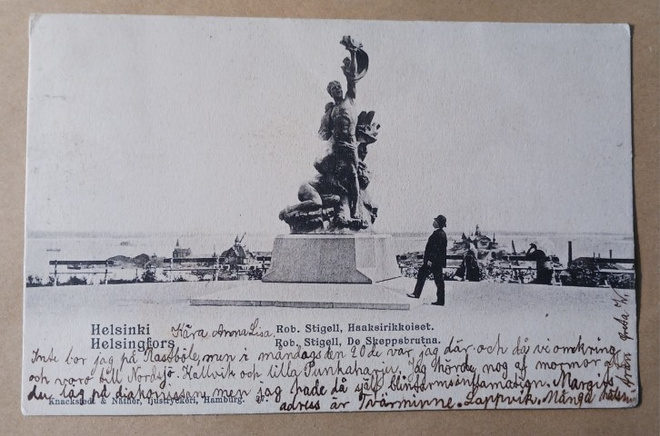 Helsinki
Helsingfors
Kära Anna Lisa
Rob. Stigell, Haaksirikkoiset.
Rob. Stigell, De Skeppsbrutna.
Inte bor jag på Rastböle, men i måndags den 20 de var jag där och då vi omkring
och voro till Nordsjö. Kallvik och lilla Punkaharju. Jag hörde nog af mormor a
du låg på diakonissan men jag hade då själf blindtarmsinflamation. Margits
adress är Tvärminne. Lappvik. Många
Knackstedt & Näther, Ljustryckeri, Hamburg.
från Greta N.